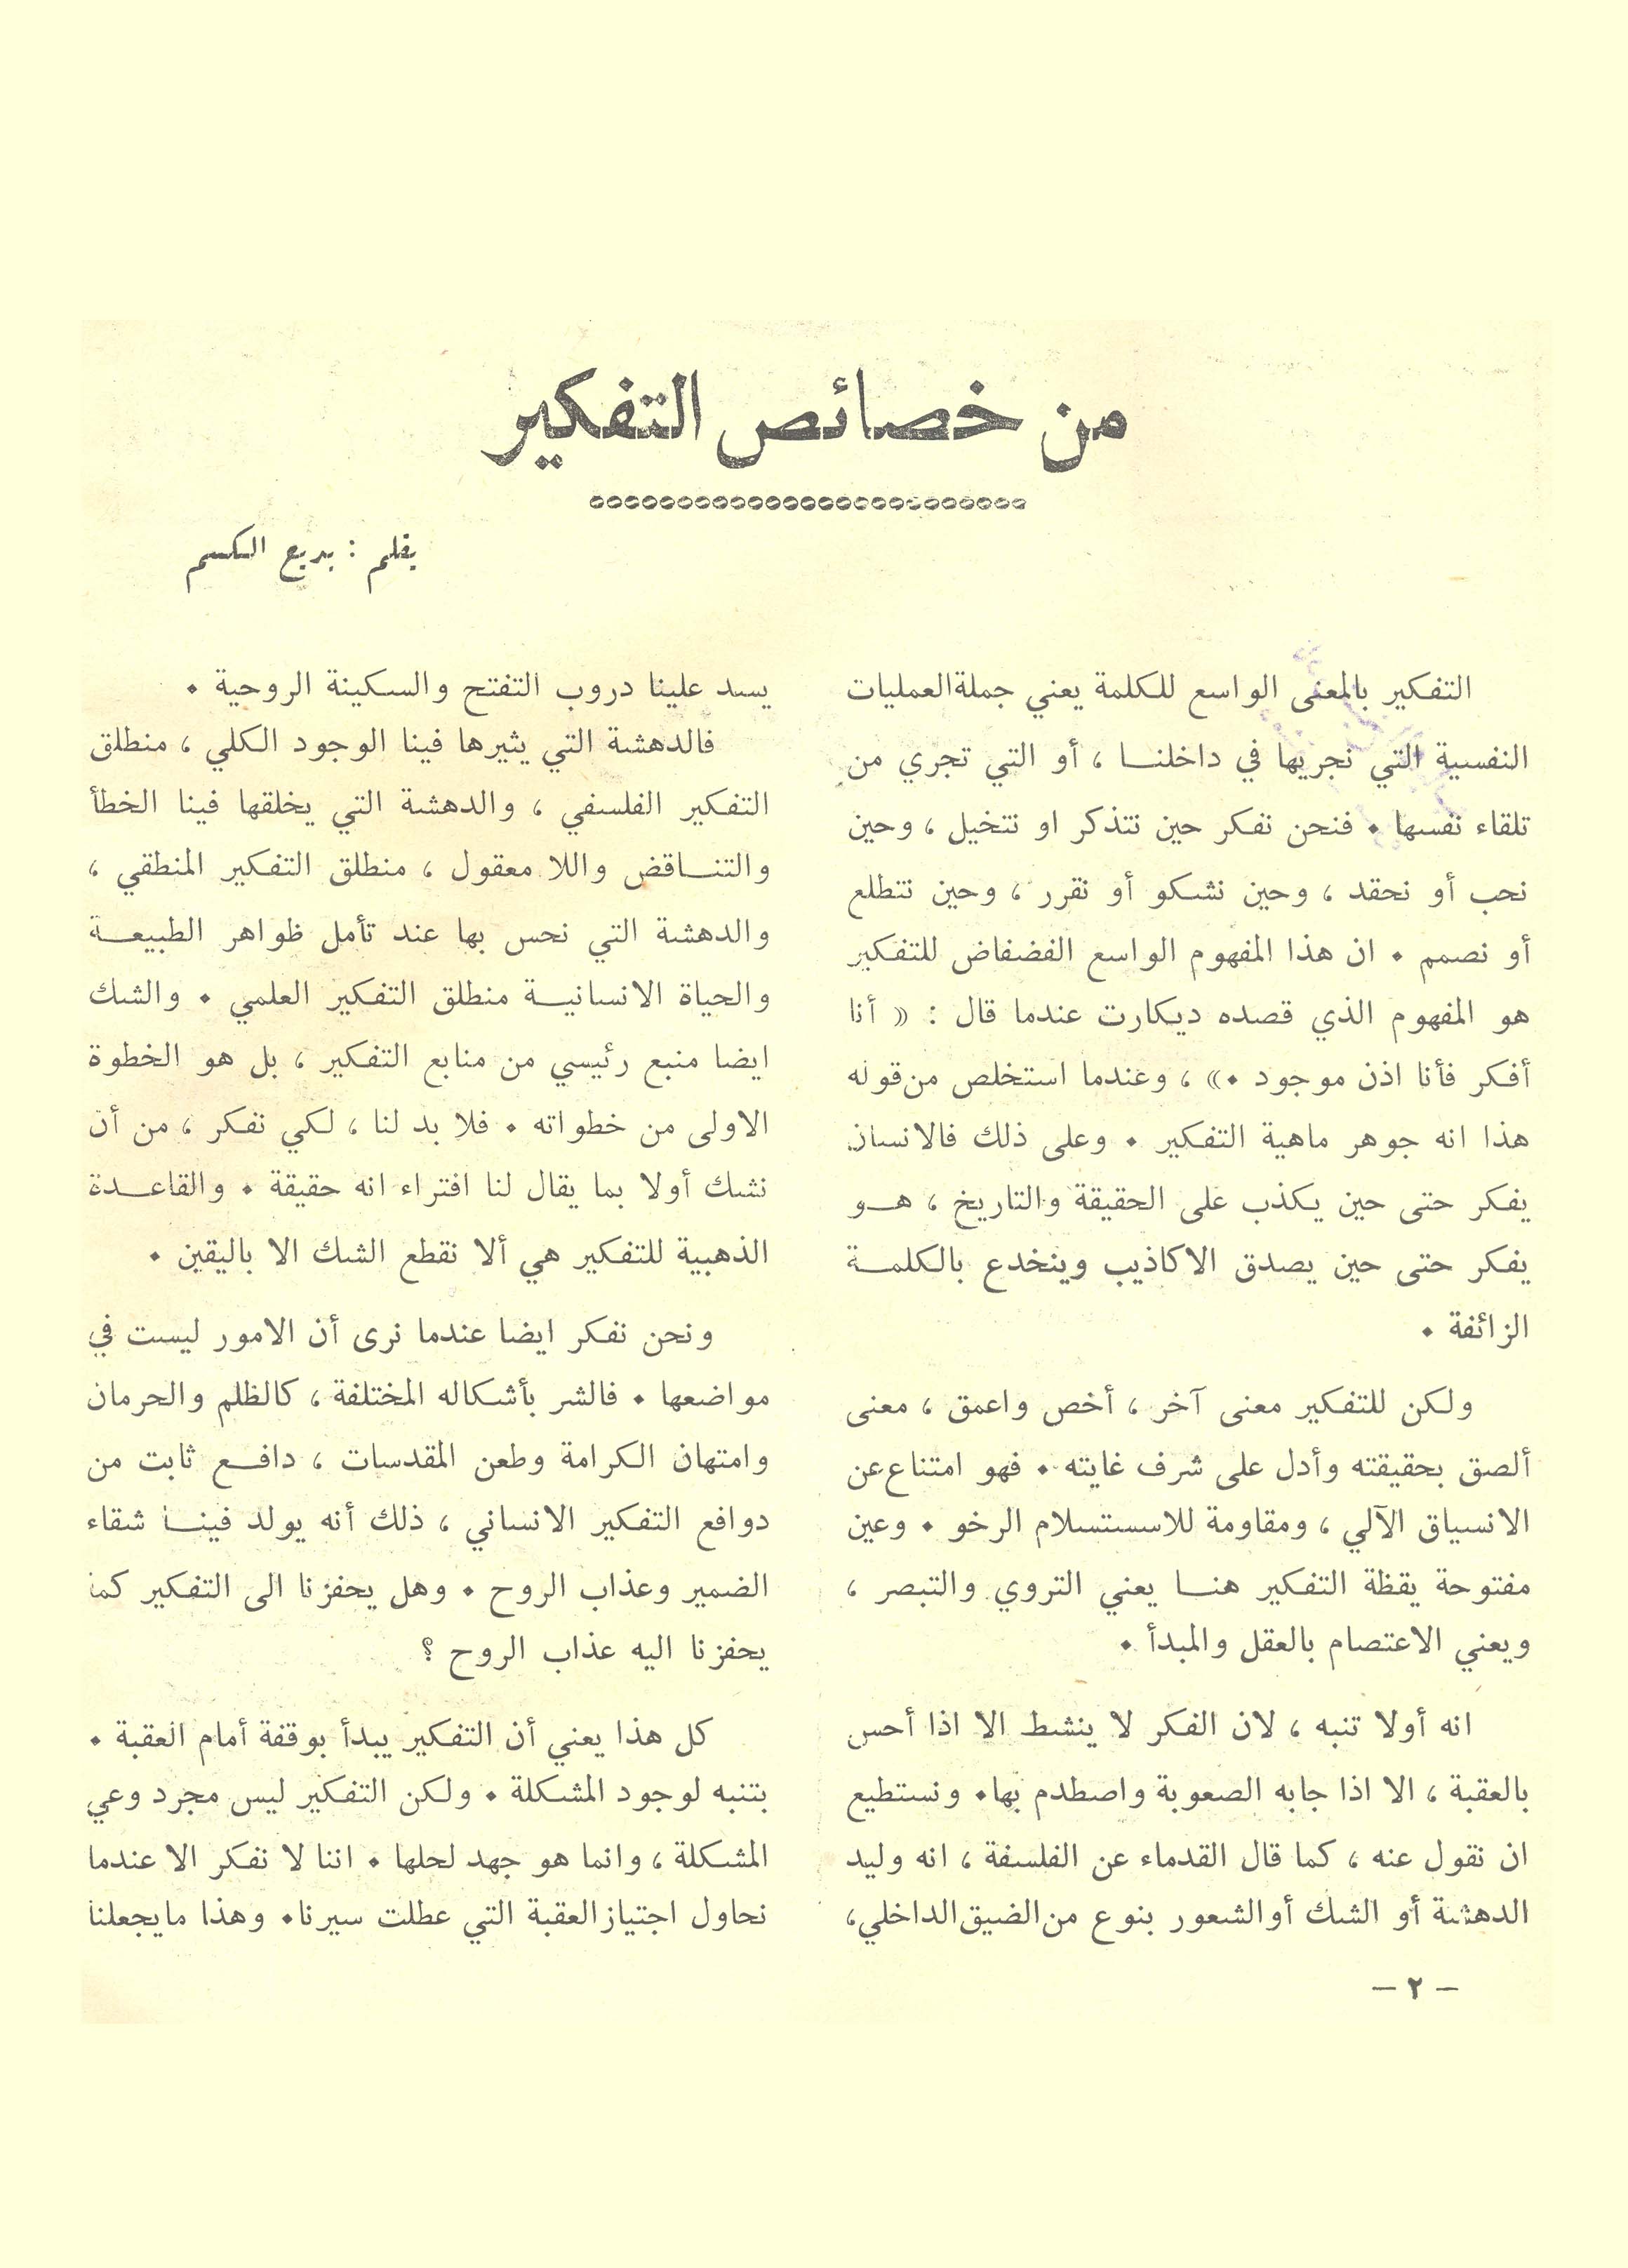 من خصائص التفكير
بقلم : بديع الكسم
التفكير بالمعنى الواسع للكلمة يعني جملة العمليات
النفسية التي نجريها في داخلنـا ، أو التي تجري من
تلقاء نفسها . فنحن نفكر حين نتذكر او نتخيل ، وحين
نحب أو نحقد ، وحين نشكو أو نقرر ، وحين نتطلع
أو نصمم . ان هذا المفهوم الواسع الفضفاض للتفكير
هو المفهوم الذي قصده ديكارت عندما قال : « أنا
أفكر فأنا اذن موجود .» ، وعندما استخلص من قوله
هذا انه جوهر ماهية التفكير . وعلى ذلك فالانسان
يفكر حتى حين يكذب على الحقيقة والتاريخ ، هـو
يفكر حتى حين يصدق الاكاذيب وينخدع بالكلمـة
الزائفة .
ولكن للتفكير معنى آخر ، أخص واعمق ، معنى
ألصق بحقيقته وأدل على شرف غايته . فهو امتناع عن
الانسياق الآلي ، ومقاومة للاسستسلام الرخو . وعين
مفتوحة يقظة التفكير هنـا يعني التروي والتبصر ،
ويعني الاعتصام بالعقل والمبدأ .
انه أولا تنبه ، لان الفكر لا ينشط الا اذا أحس
بالعقبة ، الا اذا جابه الصعوبة واصطدم بها. ونستطيع
ان نقول عنه ، كما قال القدماء عن الفلسفة ، انه وليد
الدهشة أو الشك أو الشعور بنوع من الضيق الداخلي،
يسد علينا دروب التفتح والسكينة الروحية .
فالدهشة التي يثيرها فينا الوجود الكلي ، منطلق
التفكير الفلسفي ، والدهشة التي يخلقها فينا الخطأ
والتنـاقض واللا معقول ، منطلق التفكير المنطقي ،
والدهشة التي نحس بها عند تأمل ظواهر الطبيعـة
والحياة الانسانيـة منطلق التفكير العلمي . والشك
ايضا منبع رئيسي من منابع التفكير ، بل هو الخطوة
الاولى من خطواته . فلا بد لنا ، لكي نفكر ، من أن
نشك أولا بما يقال لنا افتراء انه حقيقة . والقاعـدة
الذهبية للتفكير هي ألا نقطع الشك الا باليقين .
ونحن نفكر ايضا عندما نرى أن الامور ليست في
مواضعها . فالشر بأشكاله المختلفة ، كالظلم والحرمان
وامتهان الكرامة وطعن المقدسات ، دافـع ثابت من
دوافع التفكير الانساني ، ذلك أنه يولد فينـا شقاء
الضمير وعذاب الروح . وهل يحفزنا الى التفكير كما
يحفزنا اليه عذاب الروح ؟
كل هذا يعني أن التفكير يبدأ بوقفة أمام العقبة .
بتنبه لوجود المشكلة . ولكن التفكير ليس مجرد وعي
المشكلة ، وانما هو جهد لحلها . اننا لا نفكر الا عندما
نحاول اجتياز العقبة التي عطلت سيرنا. وهذا ما يجعلنا
– ٢ –